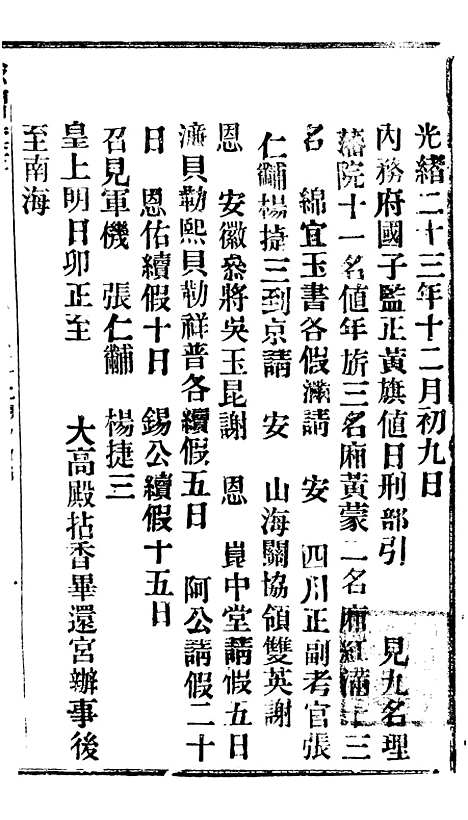 光緒二十三年十二月初九日
內務府國子監正黃旗值日刑部引　見九名理
藩院十一名值年旂三名廂黃蒙二名廂紅滿十三
名　綿宜玉書各假滿請　安　四川正副考官張
仁黼楊捷三到京請　安　山海關協領雙英謝
恩　安徽叅將吳玉昆謝　恩　崑中堂請假五日
濂貝勒熙貝勒祥普各續假五日　阿公請假二十
日　恩佑續假十日　錫公續假十五日
召見軍機　張仁黼　楊捷三
皇上明日卯正至　大高殿拈香畢還宮辦事後
至南海